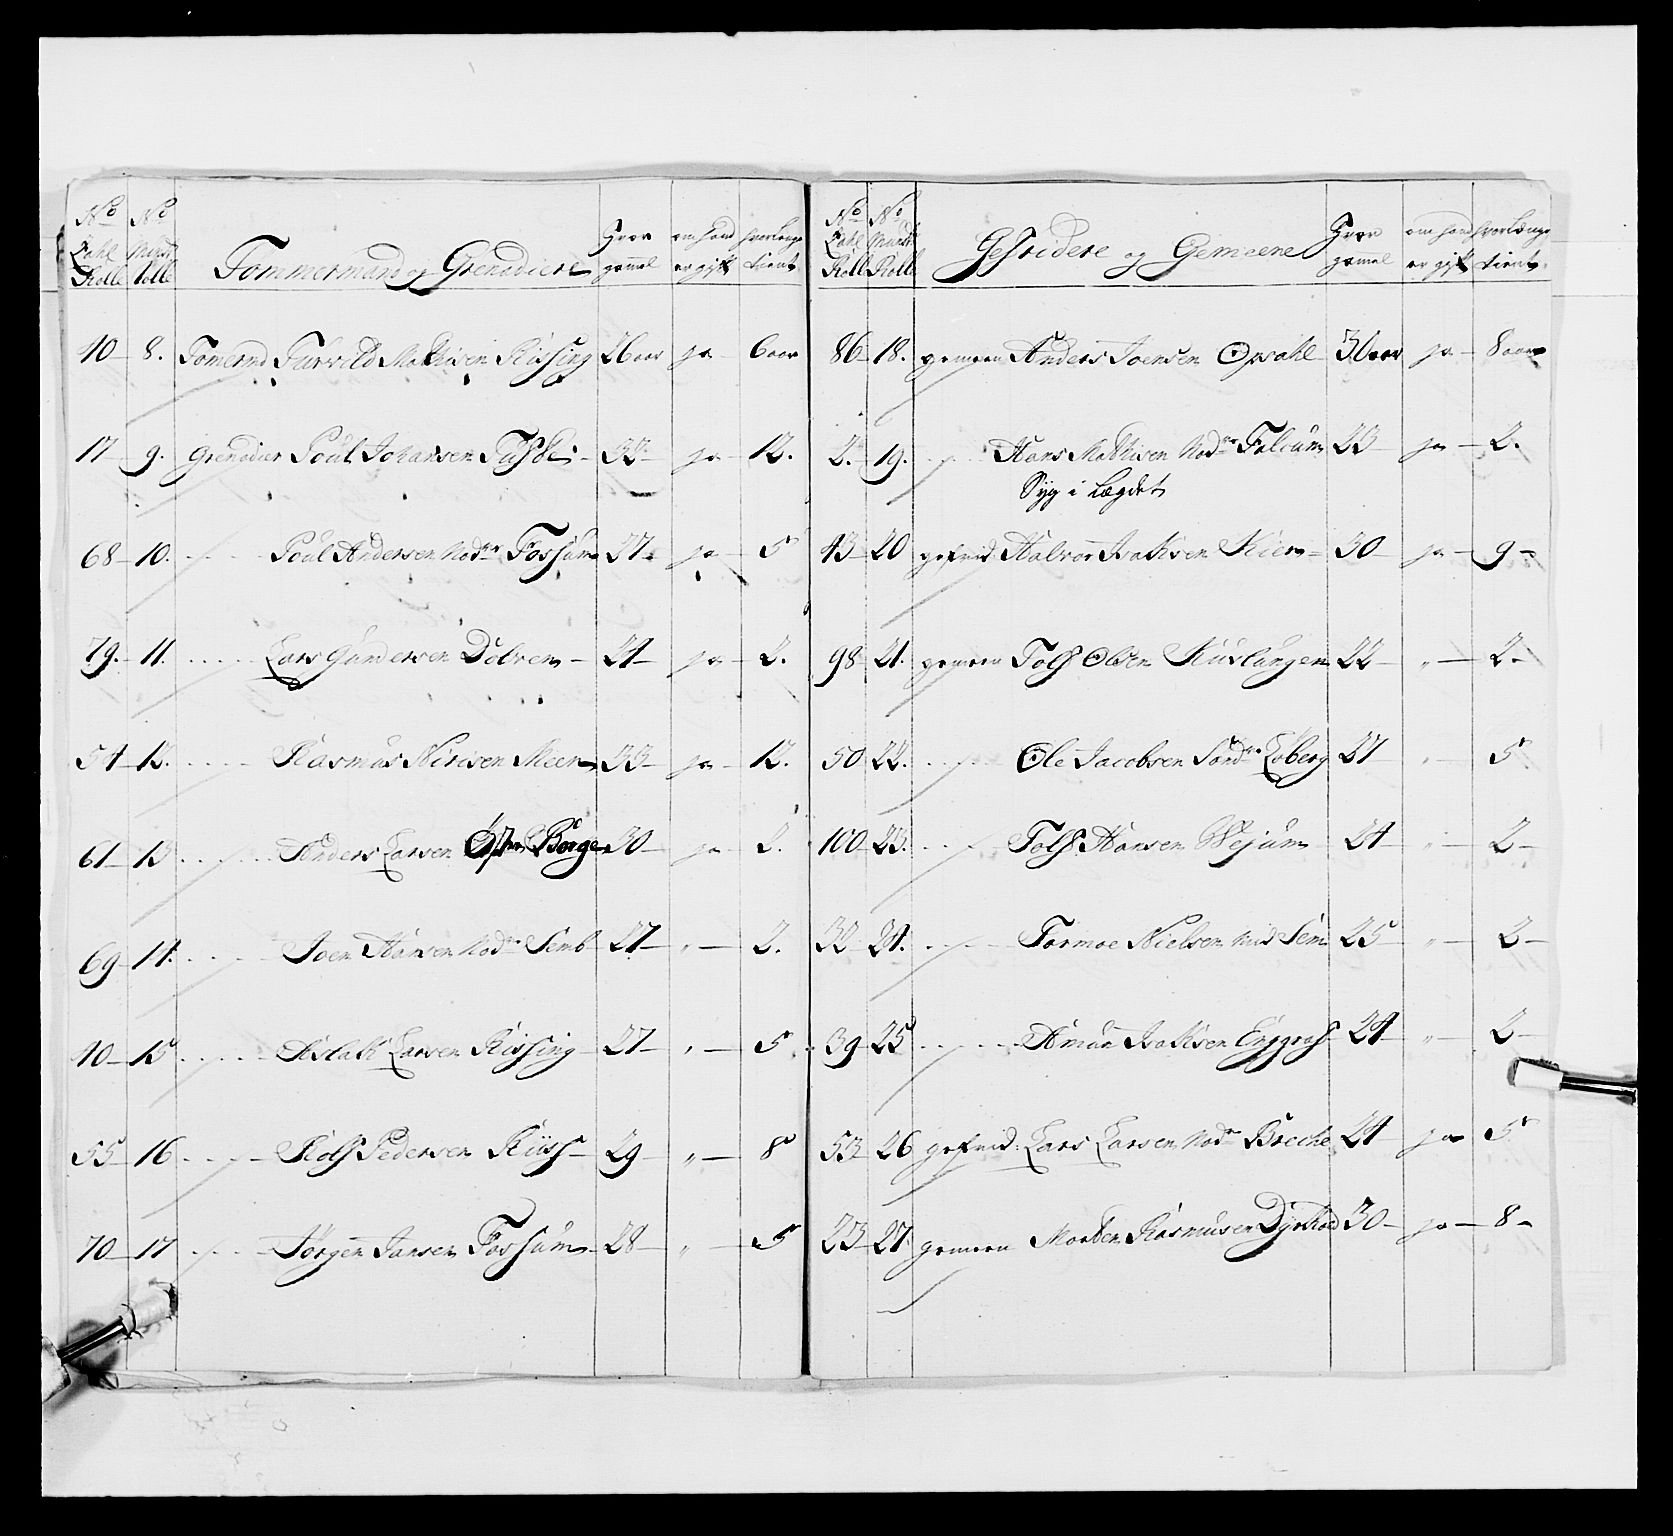 No No
Zahl Mund
Rolle Rolle Tommermand og Grenadiere hvor gammel om hand er gift hvorlenge tient
40 8. Tomermd Tarvild Mathisen Rissing 26 aar ja 6 aar
17 9. Grenadier Poul Johansen 32 ja 12.
68 10. Poul Andersen Nodre Fossum 27 ja 5
79. 11. Lars Gundersen Dolven 24 ja 2.
54 12. Rasmus Nirisen Meen 33 ja 12.
61 13 Anders Larsen Østre Borge 30 ja 2.
69 14. Joen Hansen Nodre Semb 27 „ 2.
40 15 Aslak Larsen Rissing 27 „ 5
55 16 Rolf Pedersen Riis 29 „ 8
70 17 Jørgen Jansen Fossum 28 „ 5
No No
Zahl Mund
Rolle Rolle Gefridere og Gemeene hvor gamel om hand er gift hvorlænge tient
86 18. gemeen Anders Joensen Opsahl 30 aar ja 8 aar
2. 19. Hans Mathisen Nodre Falcum 23 ja 2.
Syg i Lægdet
43 20 gefrid Halvor Isaksen Kiem 30 ja 9
98 21. gemeen Tolf Olsen Kislangen 22 „ 2
50 22. Ole Jacobsen Søndre Løberg 27 „ 5
100 23. Tolf Hansen Wejum 24 „ 2
32 24. Tormoe Nielsen Sem 25 „ 2
39 25 Amun Isaksen Enggraf 24 „ 2
53 26 gefrid: Lars Larsen Nodre Breche 24 ja 5
23 27 gemeen Morten Rasmusen Dyrkod 30 ja 8